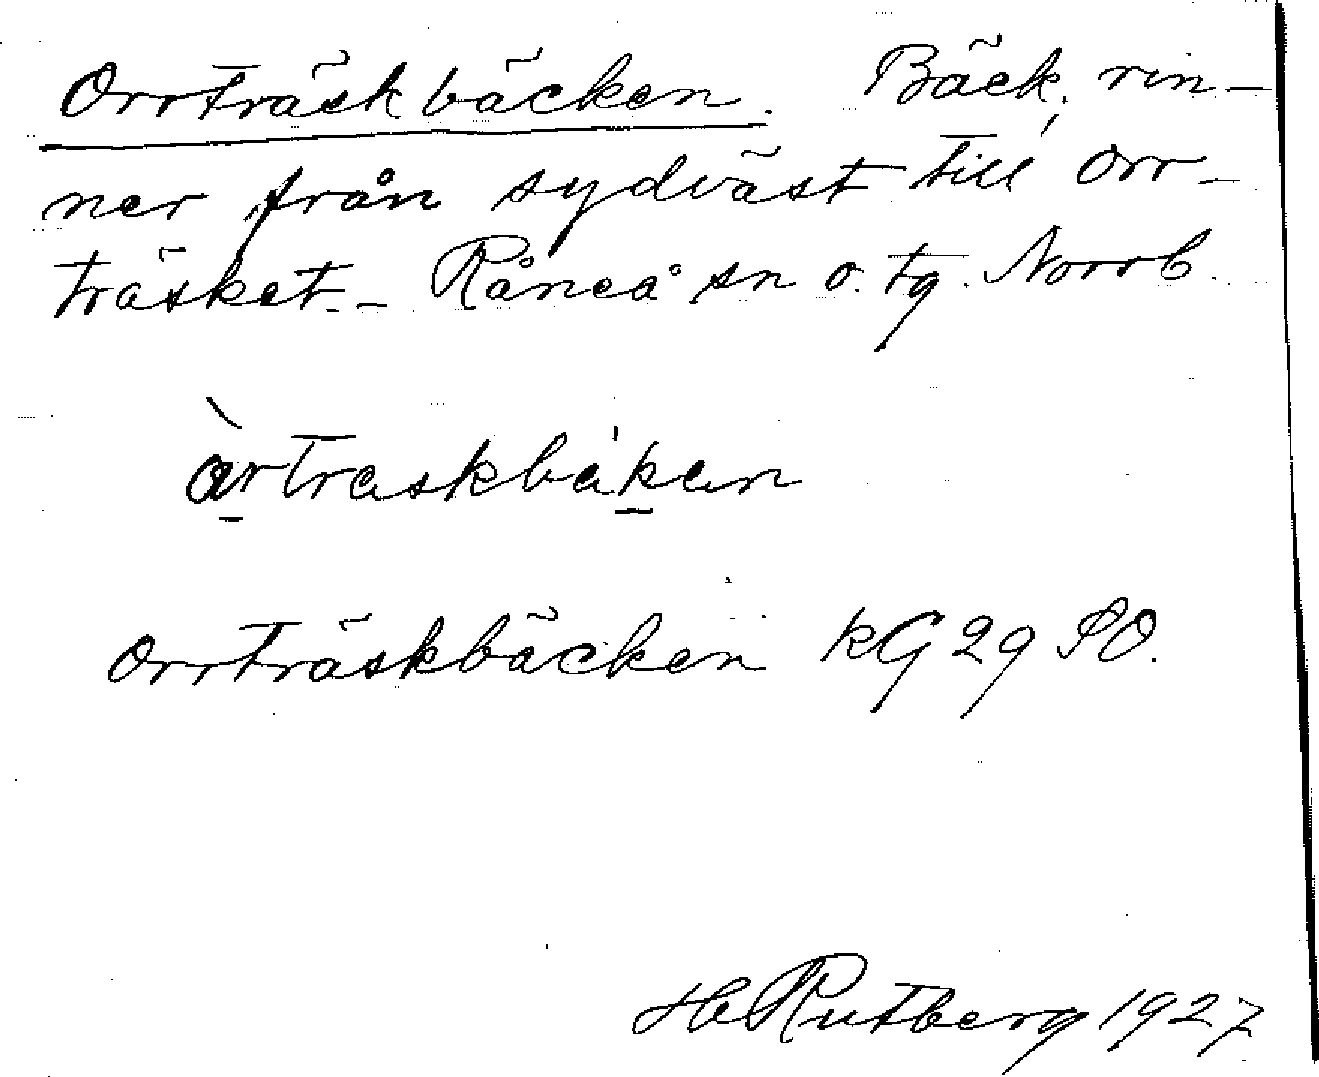 Orrträskbäcken. Bäck, rin-
ner från sydväst till Orr-
träsket. - Råneå sn o. tg. Norrb.
àrtraskbäkan
Orrträskbäcken kG 29 SO.
H Rutberg 1927